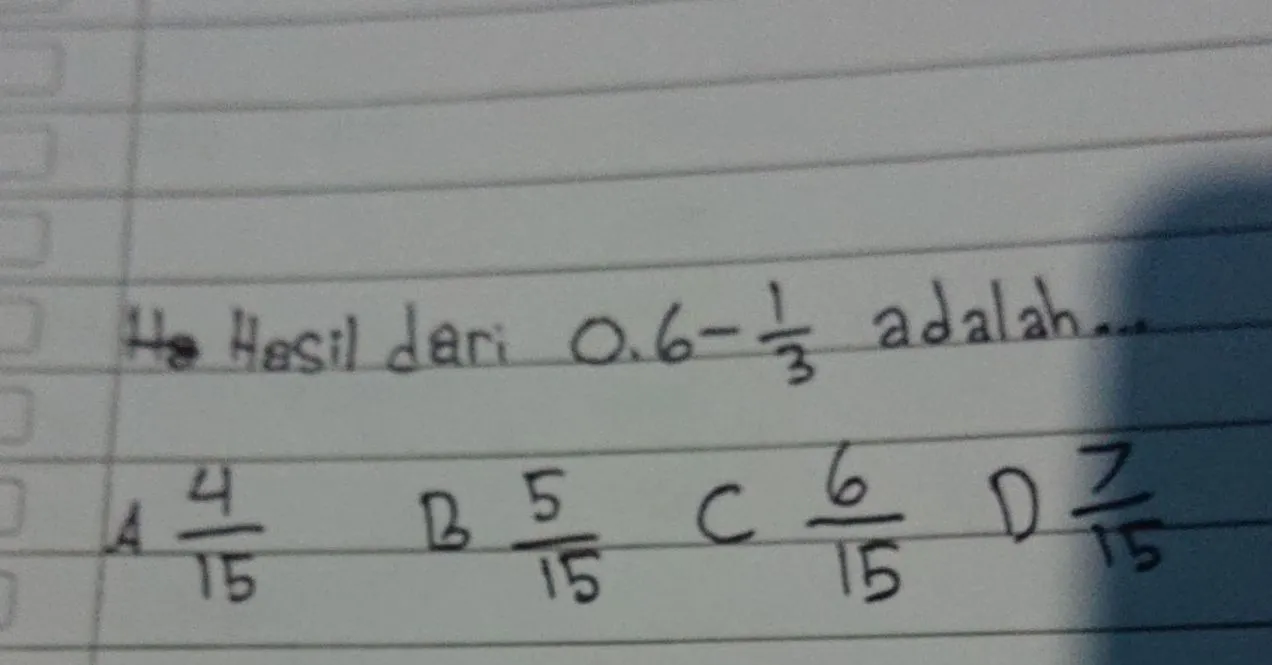 Hasil dari 0.6 - 1/3 adalah...
A 4/15 B 5/15 C 6/15 D 7/15